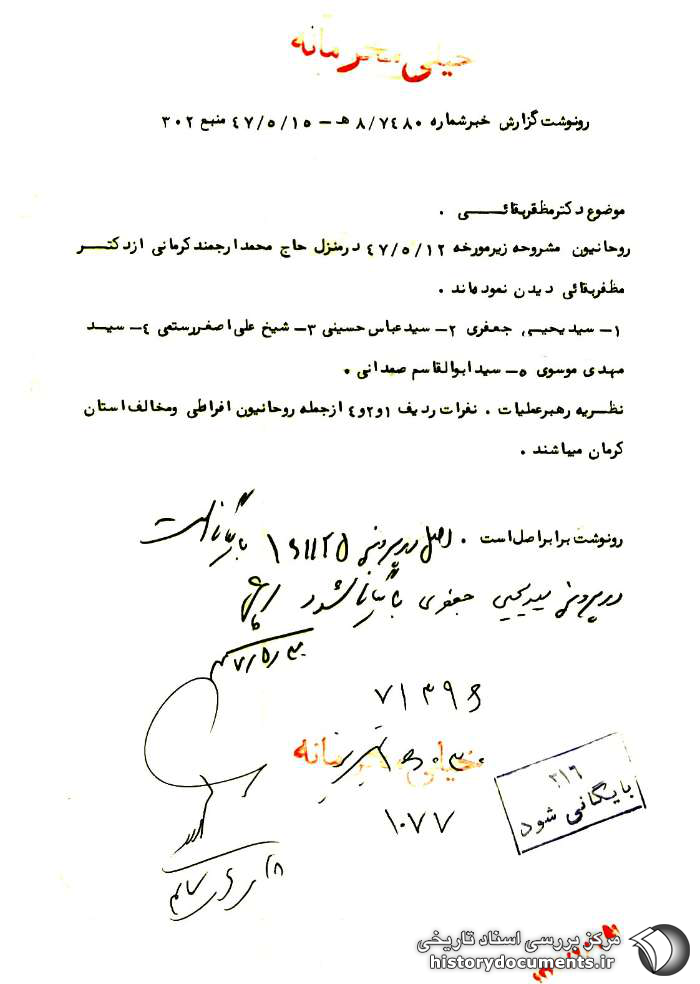 خیلی محرمانه
رونوشت گزارش خبرشماره ۸/۷۴۸۰ هـ - ۴۷/۵/۱۵ منبع ۳۰۲
موضوع دکترمظفربقائــی .
روحانیون مشروحه زیرمورخه ۴۷/۵/۱۲ درمنزل حاج محمدارجمندکرمانی ازدکتــر
مظفربقائی دیدن نمودهاند .
۱- سیدیحیی جعفری ۲- سیدعباس حسینی ۳- شیخ علی‌اصغررستمی ۴- سیـد
مهدی موسوی ۵- سیدابوالقاسم صمدانی .
نظریه رهبرعملیات . نفرات ردیف ۱و۲و۴ ازجمله روحانیون افراطی ومخالف استان
کرمان میباشند .
رونوشت برابراصل است . اصل در پرونده بایگانی است
در پرونده سیدیحیی جعفری بایگانی شود
۴۷/۵/۳۰
۷۱۳۹۶
خیلی محرمانه
۱۰۷۷
۳۱۶
بایگانی شود
مرکز بررسی اسناد تاریخی
historydocuments.ir